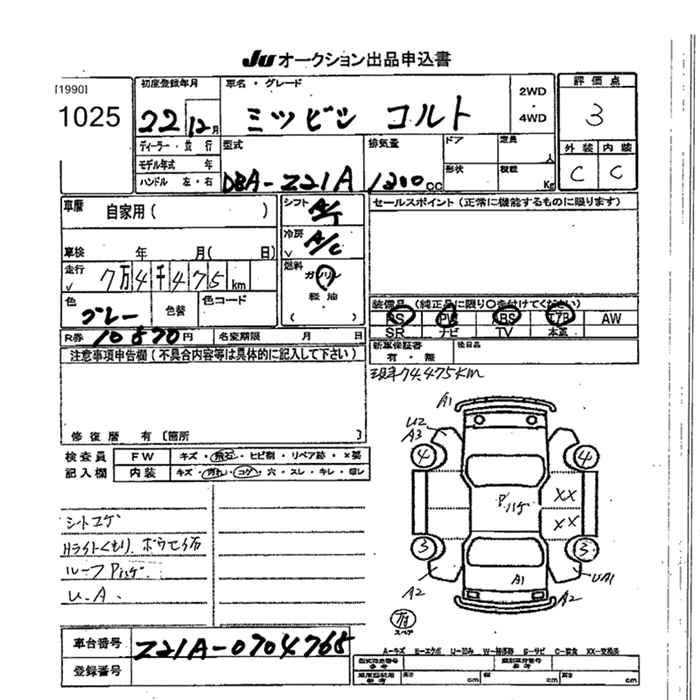 JU オークション出品申込書
[1990]
1025
初度登録年月
22 12月
車名・グレード
ミツビシ コルト
2WD
・
4WD
評価点
3
外装 内装
C C
ディーラー・並行
モデル年式 年
ハンドル 左・右
型式
DBA-Z21A
排気量
1300cc
ドア
定員
人
形状
積載
Kg
車歴
自家用( )
車検 年 月( 日)
走行
√
7万4千475km
色
グレー
色替
色コード
R券 10870円
名変期限 月 日
シフト
A/T
冷房
√
A/C
燃料
ガソリン
軽油
( )
セールスポイント(正常に機能するものに限ります)
装備品(純正品に限り○を付けてください)
PS PW ABS エアB AW
SR ナビ TV 本革
新車保証書
有・無
後日品
現車74,475km
注意事項申告欄(不具合内容等は具体的に記入して下さい)
修復歴 有〔箇所 〕
検査員
記入欄
FW キズ・飛石・ヒビ割・リペア跡・×要
内装 キズ・汚れ・コゲ・穴・スレ・キレ・
シートコゲ
Hライトくもり
ルーフPハゲ
U.A.
A1
U2
A3
4
4
Pハゲ
XX
XX
3
3
A1
A2
UA1
A2
スペア
A-キズ E-エクボ U-凹み W-補修跡 S-サビ C-腐食 XX-交換済
車台番号
Z21A-0704768
登録番号
型式指定番号
類別区分番号
長さ cm
幅 cm
高さ cm